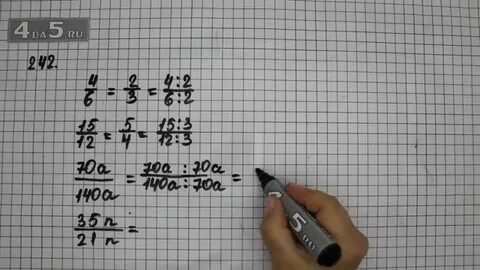 4 DA 5.RU
242.
4/6 = 2/3 = 4:2/6:2
15/12 = 5/4 = 15:3/12:3
70a/140a = 70a:70a/140a:70a =
35n/21n =
5.RU